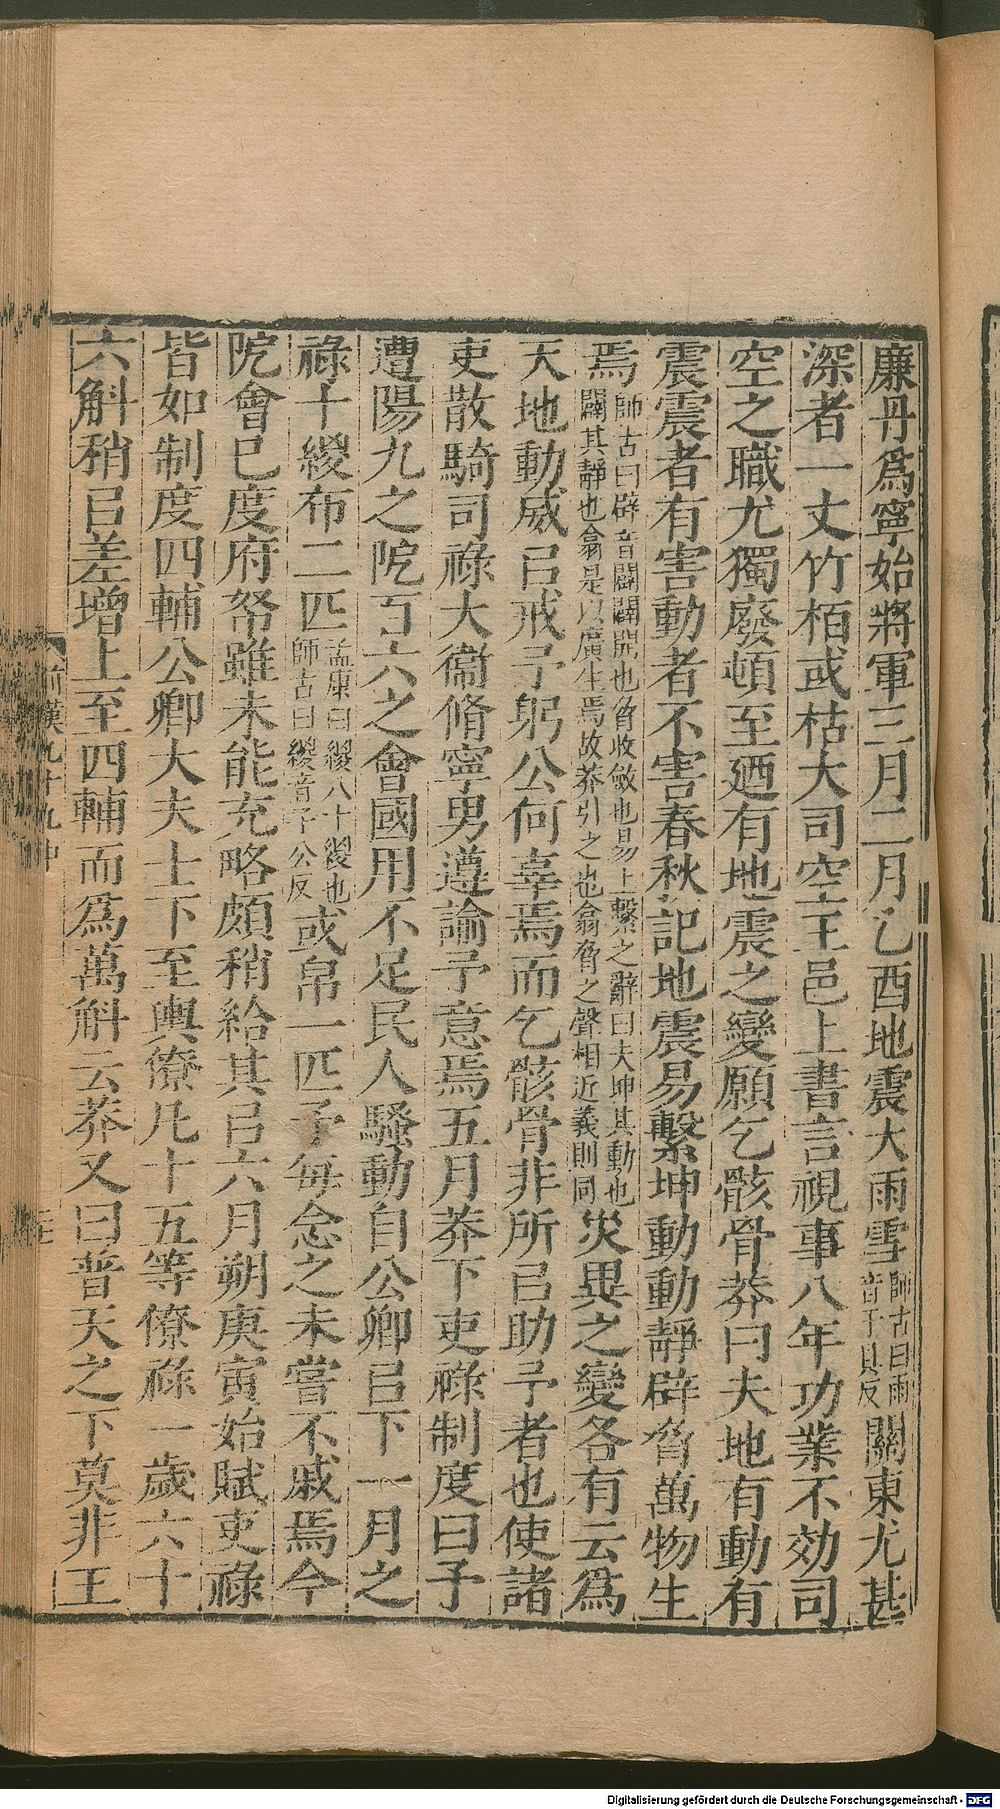 廉丹爲寧始將軍三月二月乙酉地震大雨雪師古曰雨音于具反關東尤甚
深者一丈竹栢或枯大司空王邑上書言視事八年功業不効司
空之職尤獨廢頓至廼有地震之變願乞骸骨莽曰夫地有動有
震震者有害動者不害春秋記地震易繫坤動動靜辟脅萬物生
焉師古曰辟音闢闢開也脅收斂也易上繫之辭曰夫坤其動也闢其靜也翕是以廣生焉故莽引之也翕脅之聲相近義則同災異之變各有云爲
天地動威㠯戒予躬公何辜焉而乞骸骨非所㠯助予者也使諸
吏散騎司祿大衞脩寧男遵諭予意焉五月莽下吏祿制度曰予
遭陽九之阸百六之會國用不足民人騷動自公卿㠯下一月之
祿十緵布二匹孟康曰緵八十縷也師古曰緵音子公反或帛一匹予每念之未嘗不戚焉今
阸會已度府帑雖未能充略頗稍給其㠯六月朔庚寅始賦吏祿
皆如制度四輔公卿大夫士下至輿僚凡十五等僚祿一歲六十
六斛稍㠯差增上至四輔而爲萬斛云莽又曰普天之下莫非王
前漢九十九中
Digitalisierung gefördert durch die Deutsche Forschungsgemeinschaft - DFG